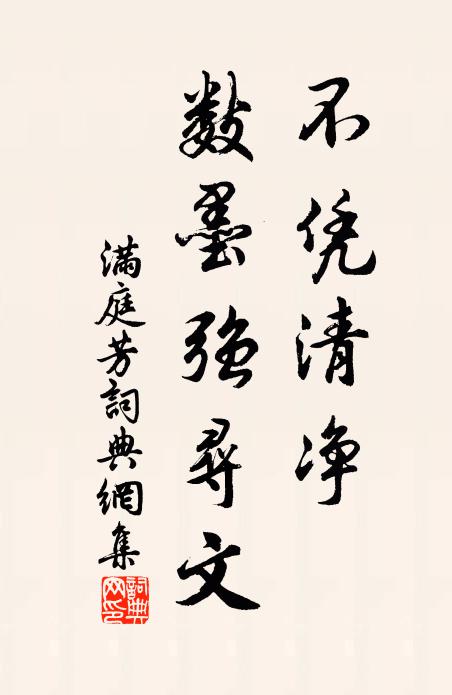 不凭清净
数墨强寻文
满庭芳詞典網集
詞典网印